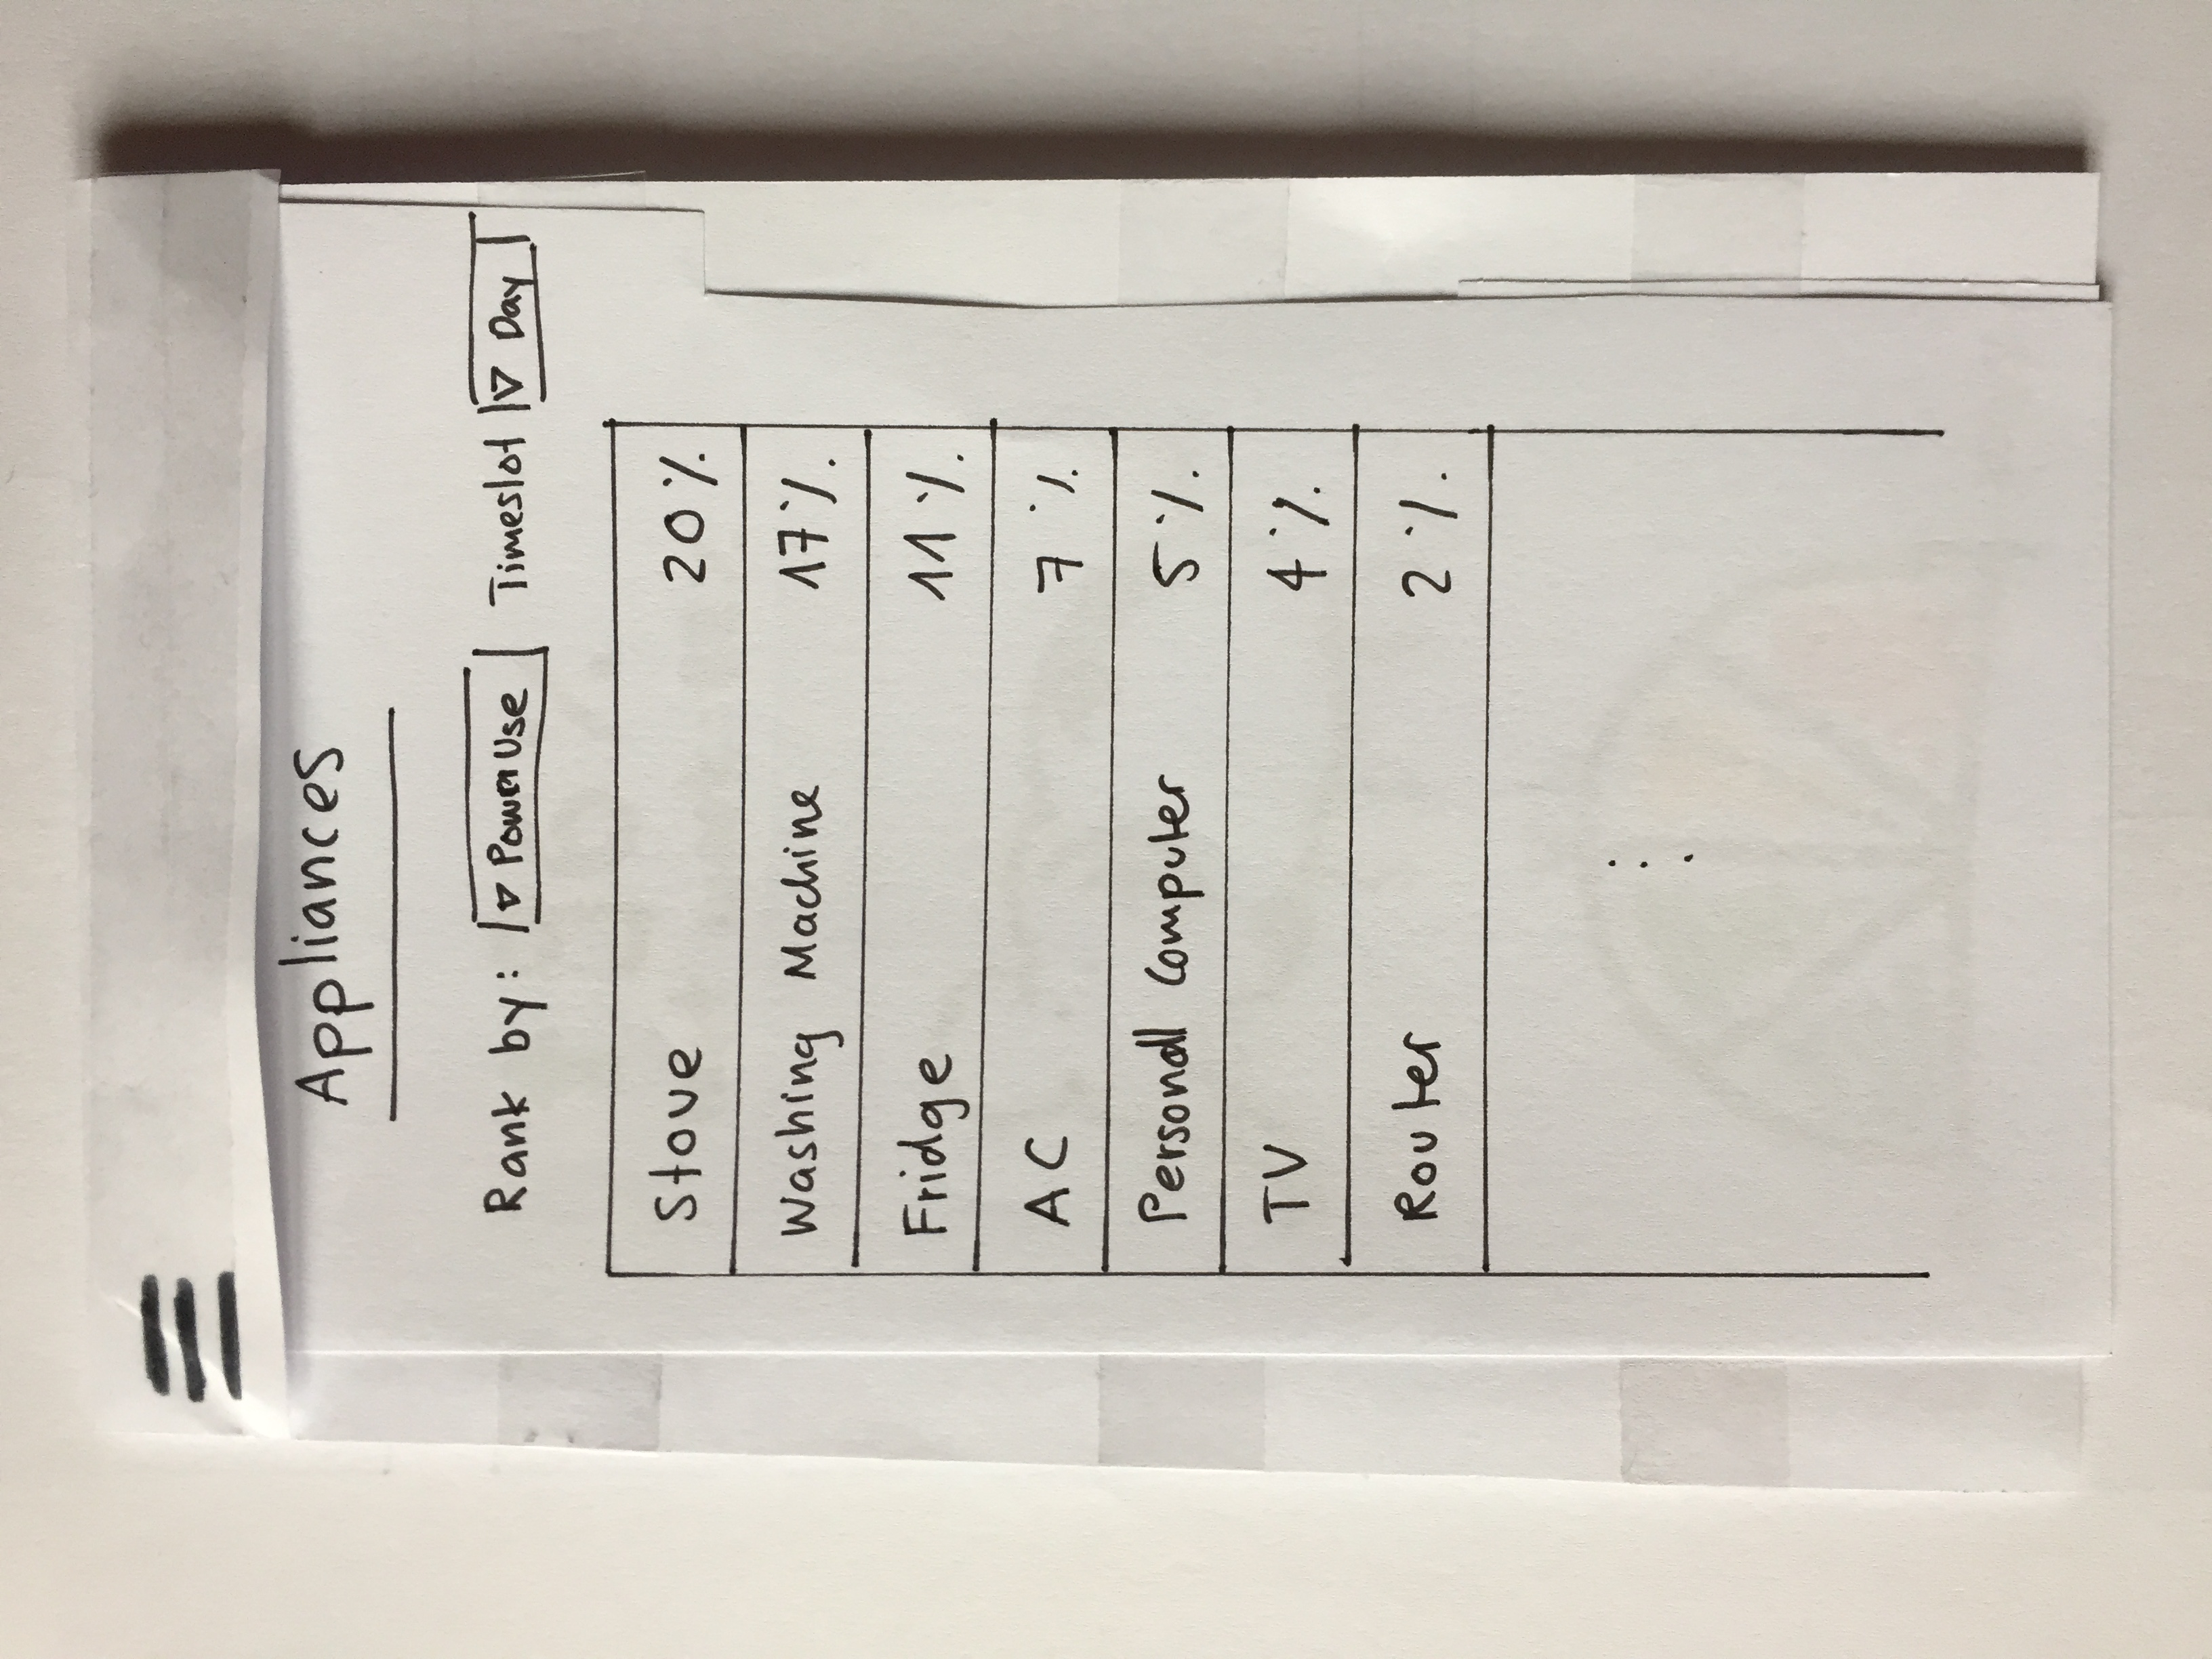 Appliances
Rank by: ▽ Power Use Timeslot ▽ Day
Stove 20%
Washing Machine 17%
Fridge 11%
AC 7%
Personall Computer 5%
TV 4%
Router 2%